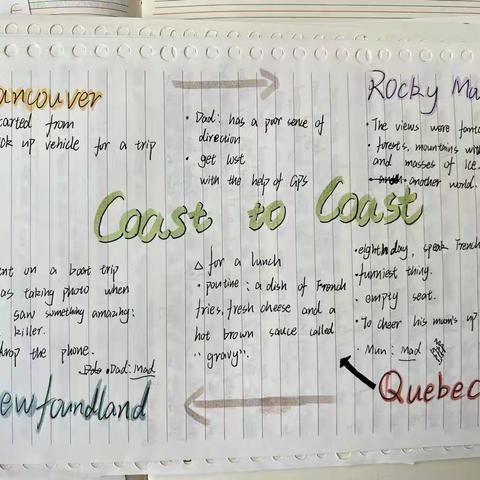 ancouver
arted from
ok up vehicle for a trip
• Dad: has a poor sense of
direction
• get lost
with the help of GPS
Rocky Ma
• The views were fanta
• forests, mountains wit
and masses of Ice.
• another world.
Coast to Coast
nt on a boat trip
as taking photo when
saw something amazing:
killer.
drop the phone.
Dad: Mad
ewfoundland
△ for a lunch
• poutine: a dish of French
fries, fresh cheese and a
hot brown sauce called
"gravy".
• eighth day, speak French
• funniest thing.
• empty seat.
• To cheer his mum's up
• Mun: mad
Quebec